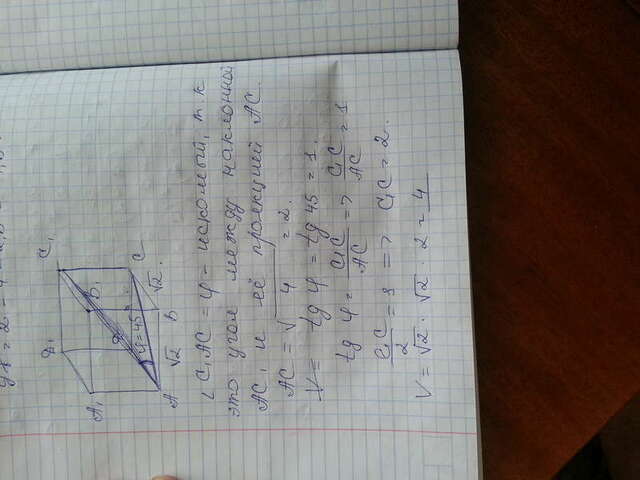 A₁ D₁ C₁
B₁
φ=45
A √2 B √2. C
∠ C₁AC = φ – искомый, т.к
это угол между наклонной
AC₁ и её проекцией AC.
AC = √4 = 2.
V = tg φ = tg 45 = 1.
tg φ = C₁C/AC => C₁C/AC = 1
C₁C/2 = 1 => C₁C = 2.
V = √2 · √2 · 2 = 4